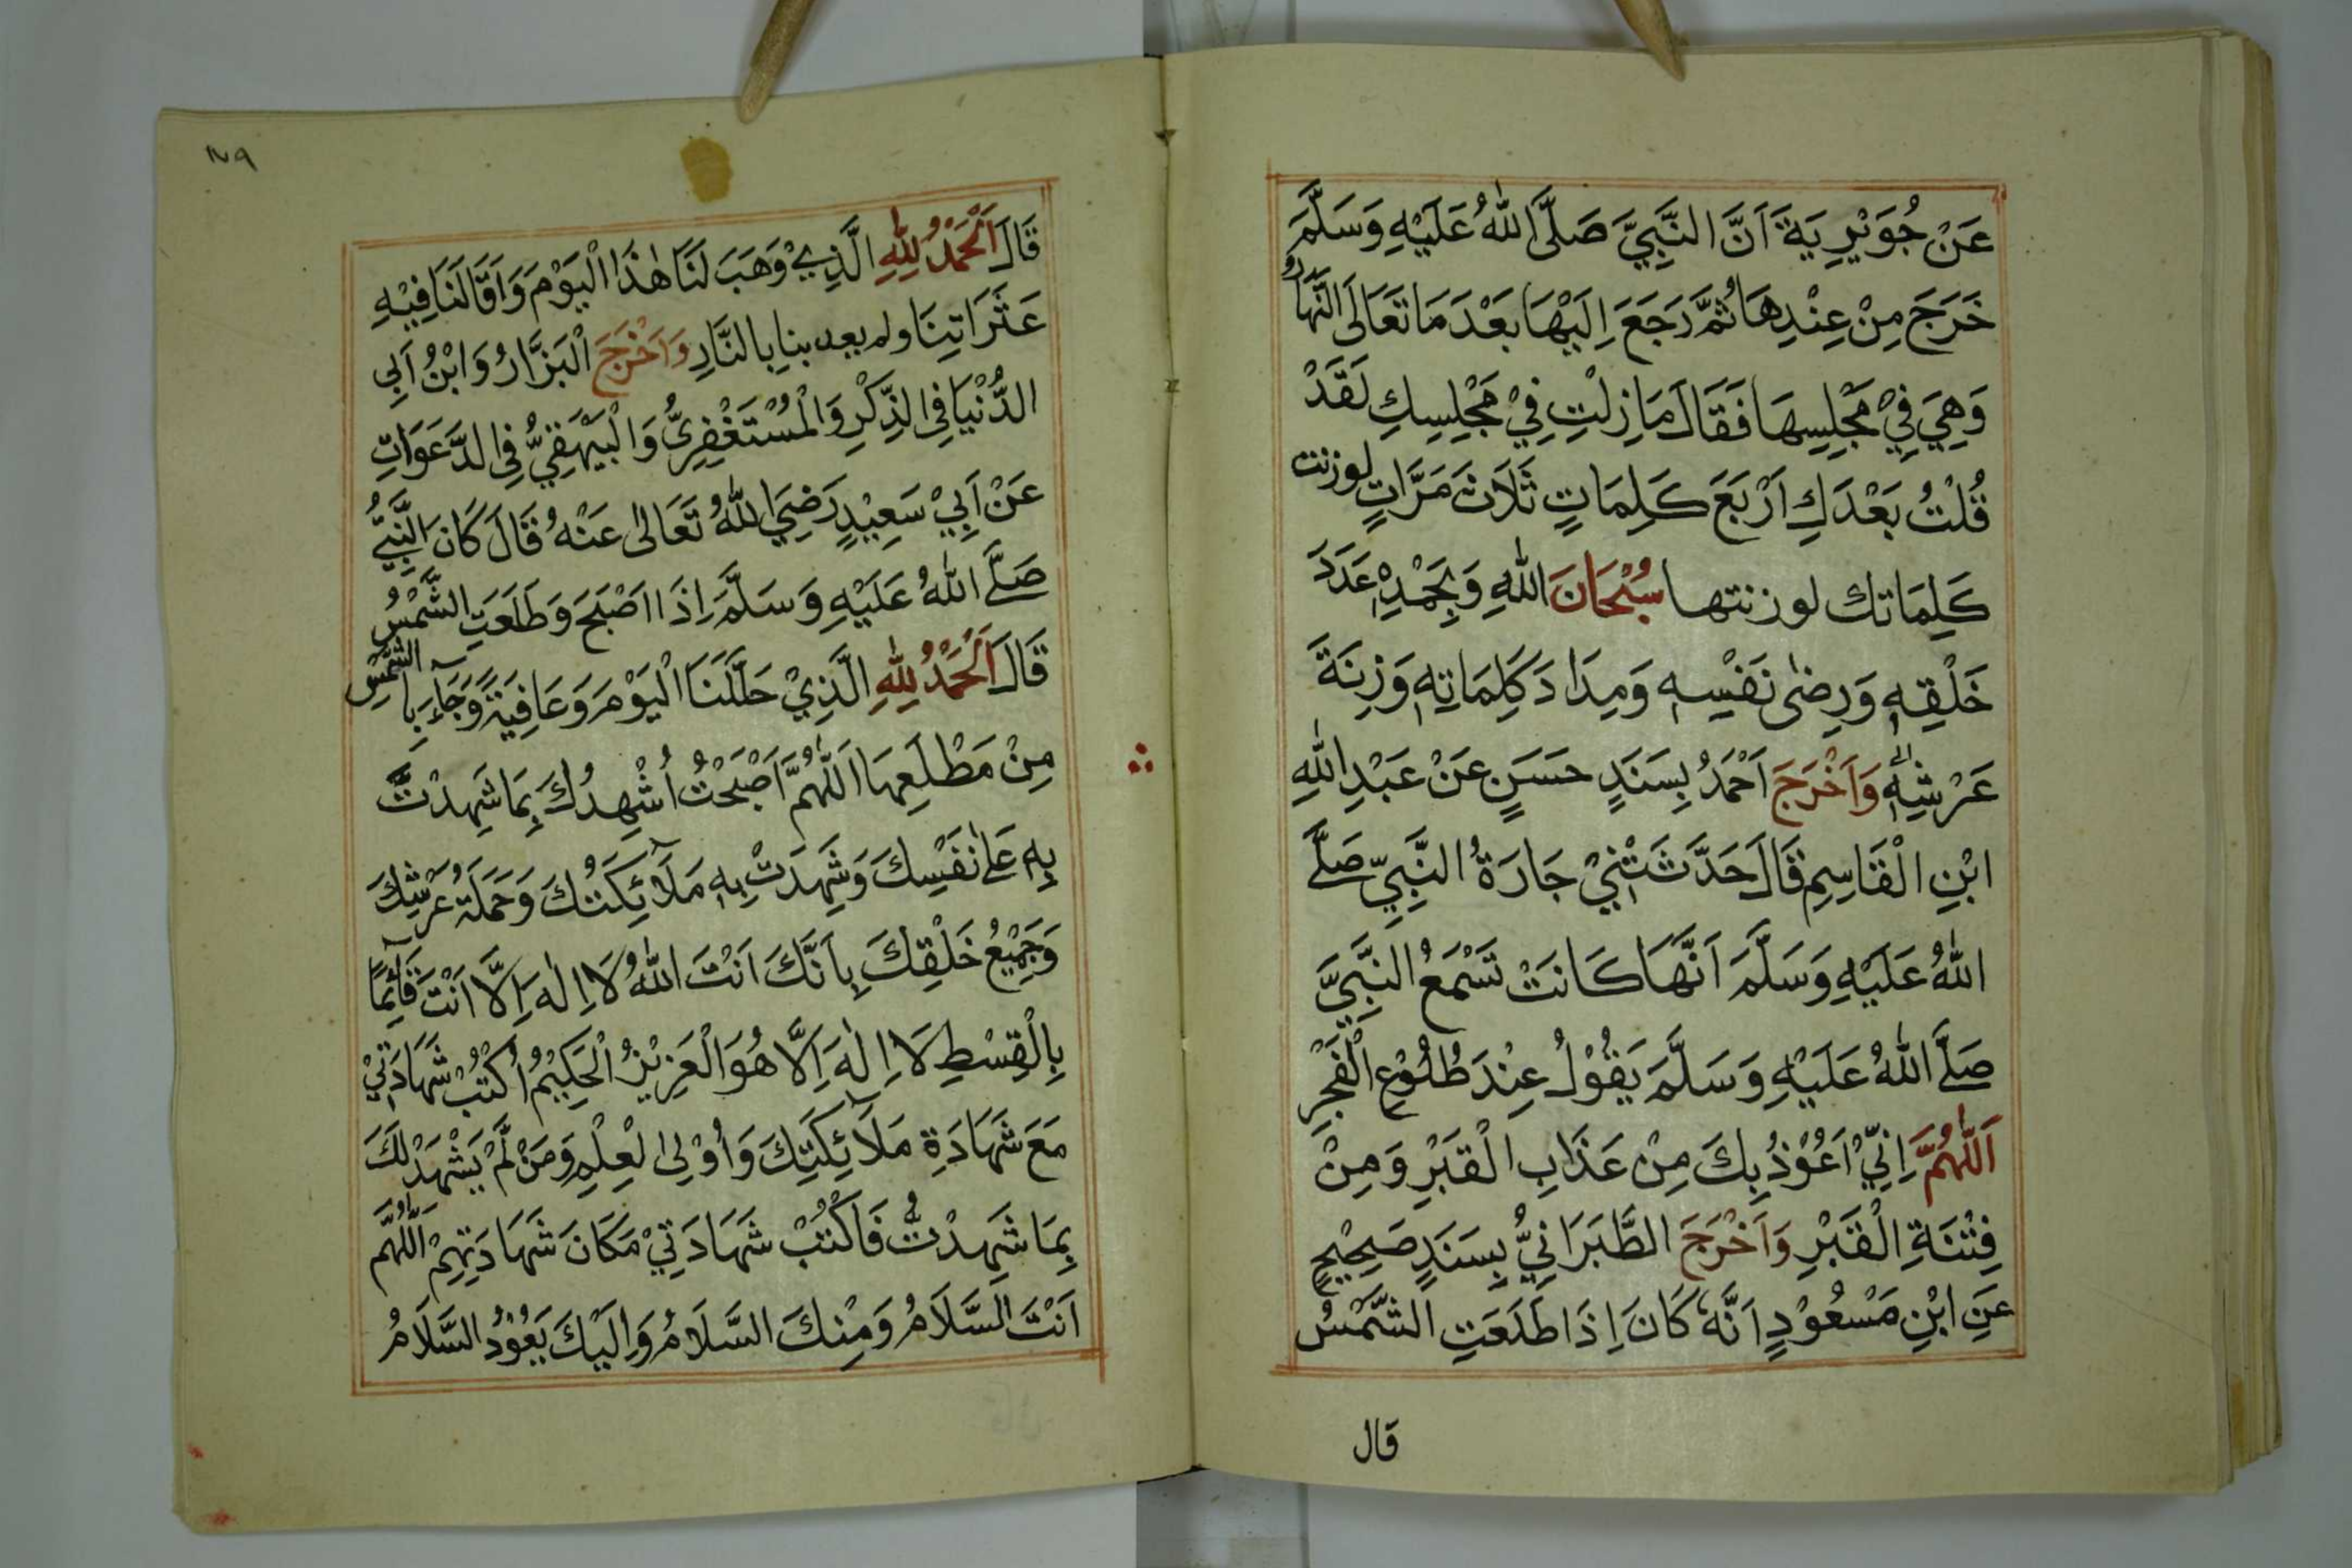 عَنْ جُوَيْرِيَةَ اَنَّ النَّبِيَّ صَلَّى اللهُ عَلَيْهِ وَسَلَّمَ
خَرَجَ مِنْ عِنْدِهَا ثُمَّ رَجَعَ اِلَيْهَا بَعْدَ مَا تَعَالَى النَّهَارُ
وَهِيَ فِيْ مَجْلِسِهَا فَقَالَ مَا زِلْتِ فِيْ مَجْلِسِكِ لَقَدْ
قُلْتُ بَعْدَكِ اَرْبَعَ كَلِمَاتٍ ثَلَاثَ مَرَّاتٍ لوزنت
كَلِمَاتك لوزنتها سُبْحَانَ اللهِ وَبِحَمْدِهٖ عَدَدَ
خَلْقِهٖ وَرِضٰى نَفْسِهٖ وَمِدَادَ كَلِمَاتِهٖ وَزِنَةَ
عَرْشِهٖ وَاَخْرَجَ اَحْمَدُ بِسَنَدٍ حَسَنٍ عَنْ عَبْدِ اللهِ
ابْنِ الْقَاسِمِ قَالَ حَدَّثَتْنِيْ جَارَةُ النَّبِيِّ صَلَّى
اللهُ عَلَيْهِ وَسَلَّمَ اَنَّهَا كَانَتْ تَسْمَعُ النَّبِيَّ
صَلَّى اللهُ عَلَيْهِ وَسَلَّمَ يَقُوْلُ عِنْدَ طُلُوْعِ الْفَجْرِ
اَللّٰهُمَّ اِنِّيْ اَعُوْذُ بِكَ مِنْ عَذَابِ الْقَبْرِ وَمِنْ
فِتْنَةِ الْقَبْرِ وَاَخْرَجَ الطَّبَرَانِيُّ بِسَنَدٍ صَحِيْحٍ
عَنِ ابْنِ مَسْعُوْدٍ اَنَّهُ كَانَ اِذَا طَلَعَتِ الشَّمْسُ
قال
١٧٩
قَالَ اَلْحَمْدُ لِلّٰهِ الَّذِيْ وَهَبَ لَنَا هٰذَا الْيَوْمَ وَاَقَالَنَا فِيْهِ
عَثَرَاتِنَا ولم يعد بنا بِالنَّارِ وَاَخْرَجَ الْبَزَّارُ وَابْنُ اَبِي
الدُّنْيَا فِي الذِّكْرِ وَالْمُسْتَغْفِرِيُّ وَالْبَيْهَقِيُّ فِي الدَّعَوَاتِ
عَنْ اَبِيْ سَعِيْدٍ رَضِيَ اللهُ تَعَالٰى عَنْهُ قَالَ كَانَ النَّبِيُّ
صَلَّى اللهُ عَلَيْهِ وَسَلَّمَ اِذَا اَصْبَحَ وَطَلَعَتِ الشَّمْسُ
قَالَ اَلْحَمْدُ لِلّٰهِ الَّذِيْ حَلَّلَنَا الْيَوْمَ وَعَافِيَةً وَجَآءَ بِالشَّمْسِ
مِنْ مَطْلَعِهَا اَللّٰهُمَّ اَصْبَحْتُ اُشْهِدُكَ بِمَا شَهِدْتَّ
بِهٖ عَلٰى نَفْسِكَ وَشَهِدَتْ بِهٖ مَلَآئِكَتُكَ وَحَمَلَةُ عَرْشِكَ
وَجَمِيْعُ خَلْقِكَ بِاَنَّكَ اَنْتَ اللهُ لَا اِلٰهَ اِلَّا اَنْتَ قَآئِمًا
بِالْقِسْطِ لَا اِلٰهَ اِلَّا هُوَ الْعَزِيْزُ الْحَكِيْمُ اُكْتُبْ شَهَادَتِيْ
مَعَ شَهَادَةِ مَلَآئِكَتِكَ وَاُوْلِي الْعِلْمِ وَمَنْ لَّمْ يَشْهَدْ لَكَ
بِمَا شَهِدْتُّ فَاكْتُبْ شَهَادَتِيْ مَكَانَ شَهَادَتِهِمْ اَللّٰهُمَّ
اَنْتَ السَّلَامُ وَمِنْكَ السَّلَامُ وَاِلَيْكَ يَعُوْدُ السَّلَامُ